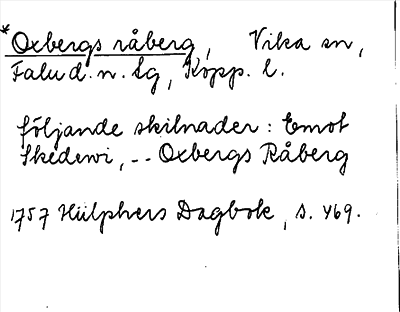 *Oxbergs råberg, Vika sn,
Falu d. n. lg, Kopp. l.
följande skilnader: Emot
Skedewi, -- Oxbergs Råberg
1757 Hülphers Dagbok, s. 469.